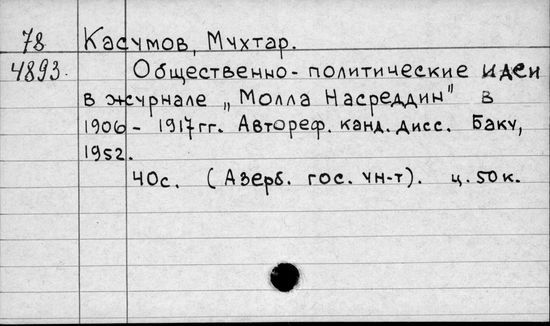 78 Касумов, Мухтар.
4893. Общественно-политические идеи
в журнале „Молла Насреддин" в
1906 - 1917 гг. Автореф. канд. дисс. Баку,
1952.
40с. (Азерб. гос. ун-т). ц. 50 к.